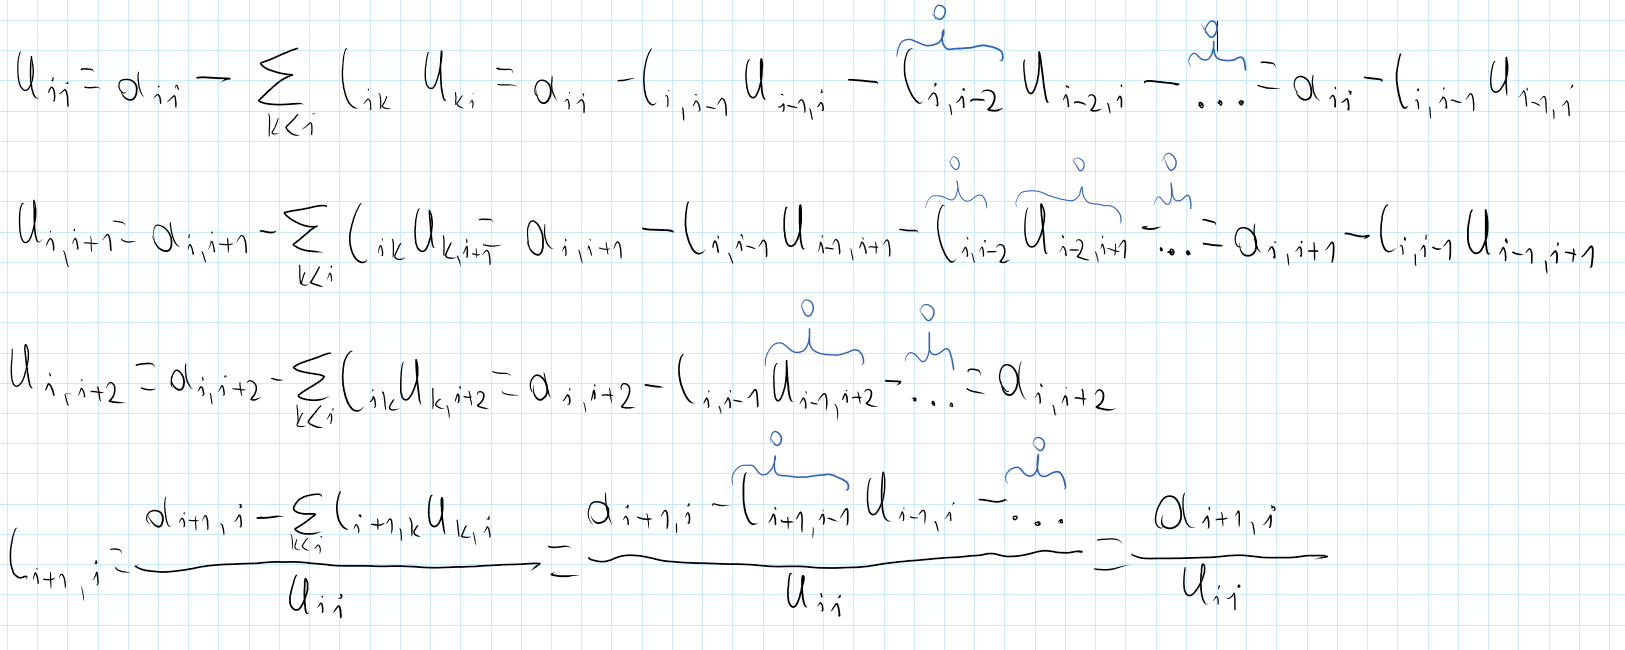 $u_{ii} = a_{ii} - \sum_{k<i} l_{ik} u_{ki} = a_{ii} - l_{i,i-1} u_{i-1,i} - \overbrace{l_{i,i-2}}^{0} u_{i-2,i} - \overbrace{\dots}^{0} = a_{ii} - l_{i,i-1} u_{i-1,i}$
$u_{i,i+1} = a_{i,i+1} - \sum_{k<i} l_{ik} u_{k,i+1} = a_{i,i+1} - l_{i,i-1} u_{i-1,i+1} - \overbrace{l_{i,i-2}}^{0} \overbrace{u_{i-2,i+1}}^{0} - \overbrace{\dots}^{0} = a_{i,i+1} - l_{i,i-1} u_{i-1,i+1}$
$u_{i,i+2} = a_{i,i+2} - \sum_{k<i} l_{ik} u_{k,i+2} = a_{i,i+2} - l_{i,i-1} \overbrace{u_{i-1,i+2}}^{0} - \overbrace{\dots}^{0} = a_{i,i+2}$
$l_{i+1,i} = \frac{a_{i+1,i} - \sum_{k<i} l_{i+1,k} u_{k,i}}{u_{ii}} = \frac{a_{i+1,i} - \overbrace{l_{i+1,i-1}}^{0} u_{i-1,i} - \overbrace{\dots}^{0}}{u_{ii}} = \frac{a_{i+1,i}}{u_{ii}}$